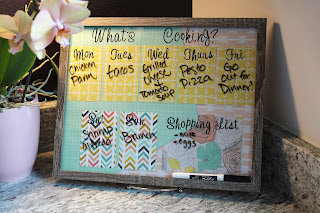 What's Cooking?
Mon Tues Wed Thurs Fri
chicken Parm
tacos
Grilled cheese + Tomato Soup
Pesto Pizza
Go out for Dinner!
Sat Sun
Shrimp
Brunch
Shopping List
- milk
- eggs